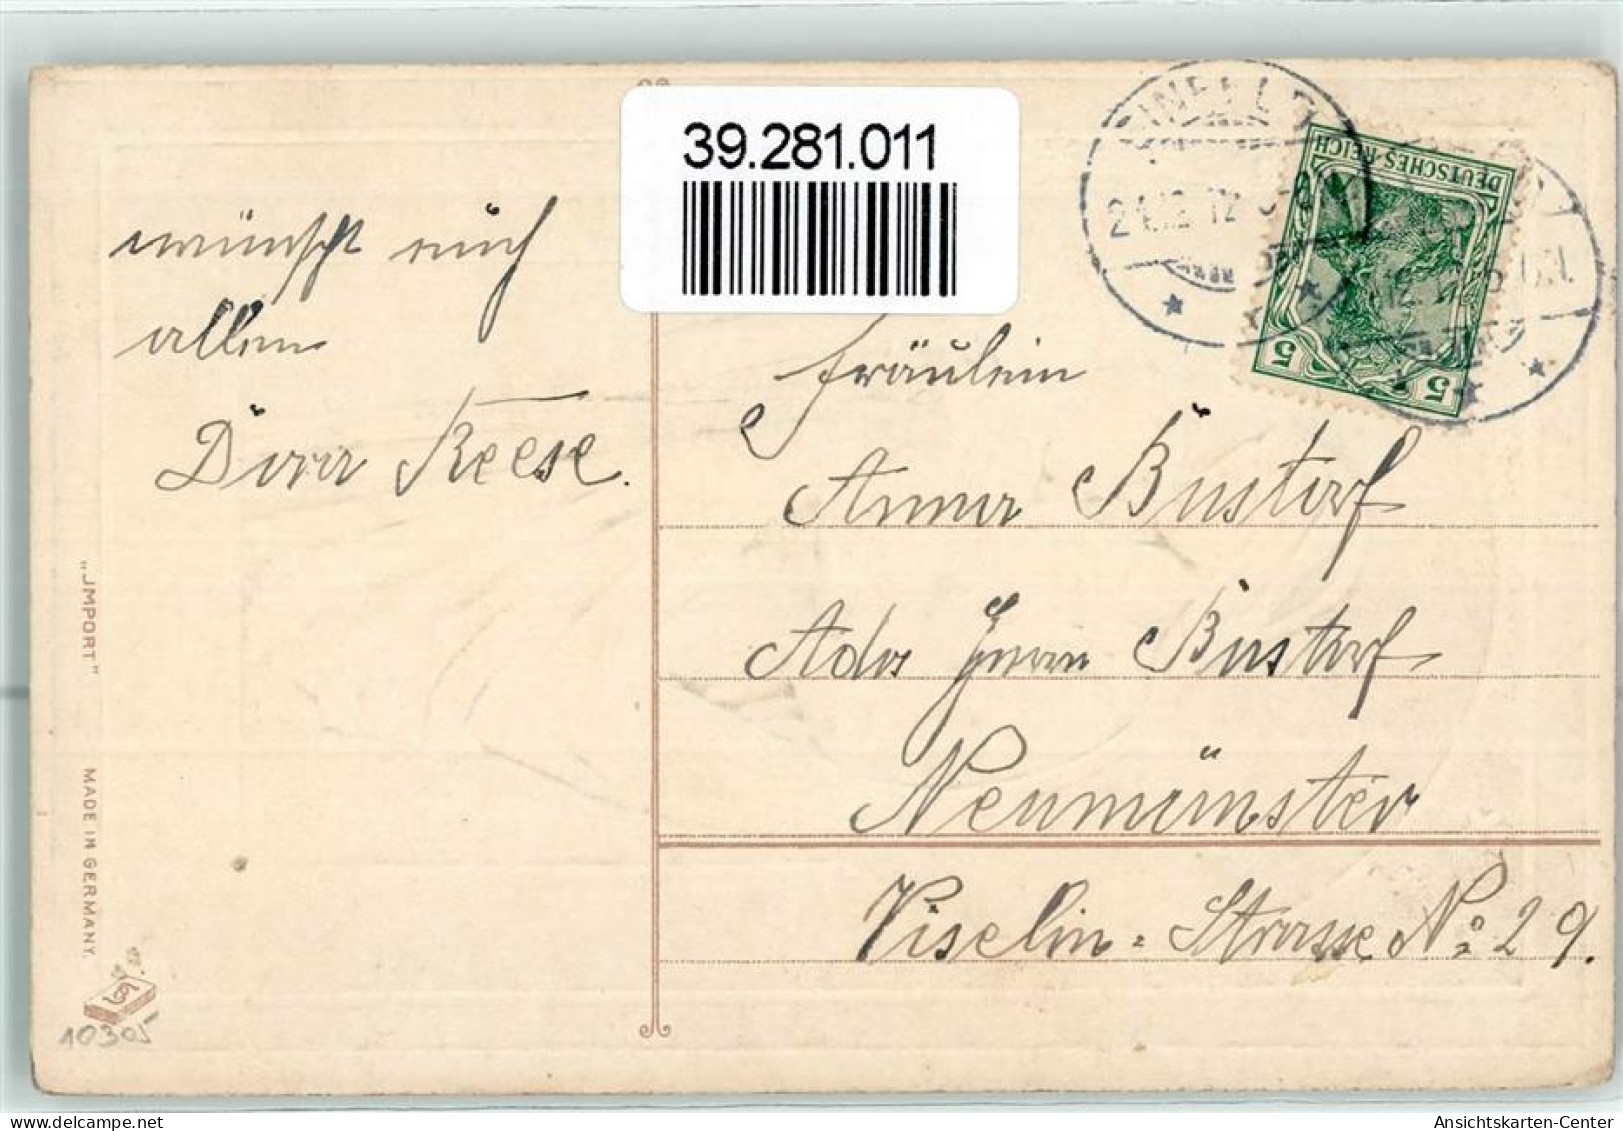 39.281.011
wünscht euch
allen
Dora Reese.
Fräulein
Anna Bustorf
Adr Herrn Bustorf
Neumünster
Viselin-Strasse No 29.
DEUTSCHES REICH
5 5
"IMPORT"
MADE IN GERMANY.
10305
Ansichtskarten-Center